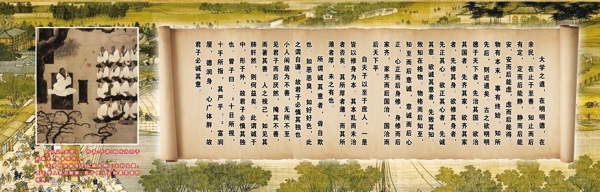 大学之道，在明明德，在
亲民，在止于至善。知止而后
有定，定而后能静，静而后能
安，安而后能虑，虑而后能得。
物有本末，事有终始，知所
先后，则近道矣。古之欲明明
德于天下者，先治其国；欲治
其国者，先齐其家；欲齐其家
者，先修其身；欲修其身者，
先正其心；欲正其心者，先诚
其意；欲诚其意者，先致其知；
致知在格物。物格而后知至，
知至而后意诚，意诚而后心
正，心正而后身修，身修而后
家齐，家齐而后国治，国治而
后天下平。
自天子以至于庶人，一是
皆以修身为本。其本乱而末治
者否矣，其所厚者薄，而其所
薄者厚，未之有也。
所谓诚其意者，毋自欺
也，如恶恶臭，如好好色，
此之谓自谦，故君子必慎其独也。
小人闲居为不善，无所不至，
见君子而后厌然，掩其不善，
而著其善。人之视己，如见其
肺肝然，则何益矣。此谓诚于
中，形于外，故君子必慎其独
也。曾子曰：“十目所视，
十手所指，其严乎！”富润
屋，德润身，心广体胖，故
君子必诚其意。